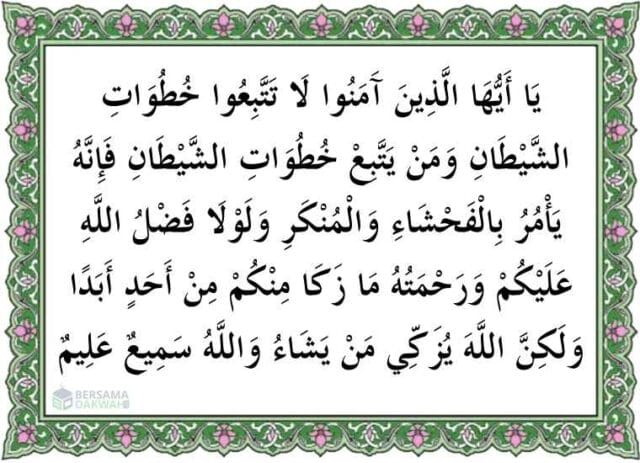 يَا أَيُّهَا الَّذِينَ آمَنُوا لَا تَتَّبِعُوا خُطُوَاتِ
الشَّيْطَانِ وَمَنْ يَتَّبِعْ خُطُوَاتِ الشَّيْطَانِ فَإِنَّهُ
يَأْمُرُ بِالْفَحْشَاءِ وَالْمُنْكَرِ وَلَوْلَا فَضْلُ اللَّهِ
عَلَيْكُمْ وَرَحْمَتُهُ مَا زَكَا مِنْكُمْ مِنْ أَحَدٍ أَبَدًا
وَلَكِنَّ اللَّهَ يُزَكِّي مَنْ يَشَاءُ وَاللَّهُ سَمِيعٌ عَلِيمٌ
BERSAMA
DAKWAH